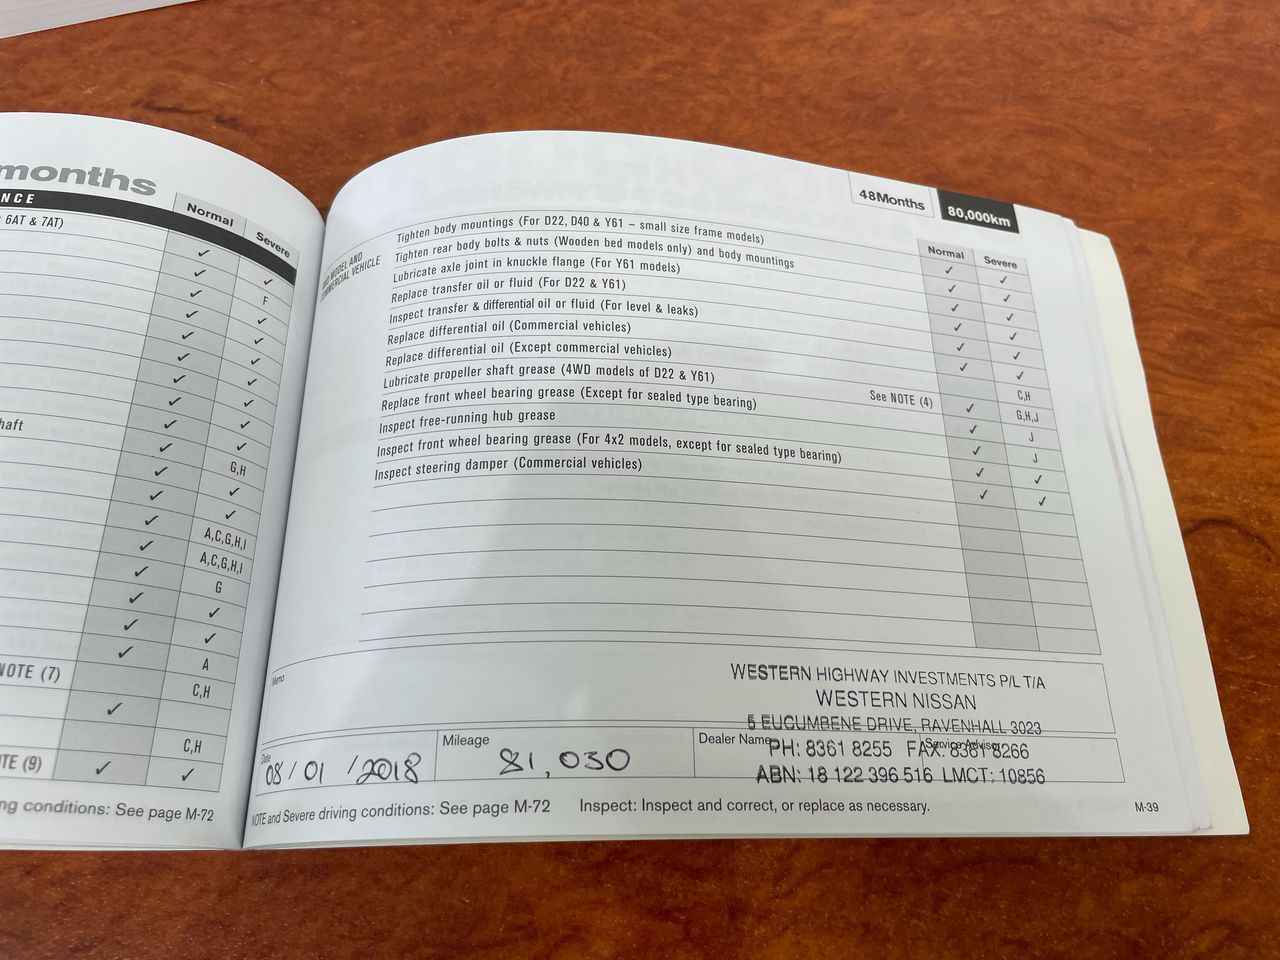 months
NCE
Normal
Severe
6AT & 7AT)
✓ ✓
✓ F
✓ ✓
✓ ✓
✓ ✓
✓ ✓
✓ ✓
✓ ✓
haft
✓ ✓
✓ G,H
✓ ✓
✓ ✓
✓ A,C,G,H,I
✓ A,C,G,H,I
✓ G
✓ ✓
✓ ✓
✓ A
NOTE (7)
C,H
✓
C,H
TE (9) ✓ ✓
ng conditions: See page M-72
48Months
80,000km
Normal
Severe
COMMERCIAL VEHICLE
Tighten body mountings (For D22, D40 & Y61 – small size frame models) ✓ ✓
Tighten rear body bolts & nuts (Wooden bed models only) and body mountings ✓ ✓
Lubricate axle joint in knuckle flange (For Y61 models) ✓ ✓
Replace transfer oil or fluid (For D22 & Y61) ✓ ✓
Inspect transfer & differential oil or fluid (For level & leaks) ✓ ✓
Replace differential oil (Commercial vehicles) ✓ ✓
Replace differential oil (Except commercial vehicles) C,H
Lubricate propeller shaft grease (4WD models of D22 & Y61) See NOTE (4) ✓ G,H,J
Replace front wheel bearing grease (Except for sealed type bearing) ✓ J
Inspect free-running hub grease ✓ J
Inspect front wheel bearing grease (For 4x2 models, except for sealed type bearing) ✓ ✓
Inspect steering damper (Commercial vehicles) ✓ ✓
Memo
WESTERN HIGHWAY INVESTMENTS P/L T/A
WESTERN NISSAN
5 EUCUMBENE DRIVE, RAVENHALL 3023
PH: 8361 8255 FAX: 8361 8266
ABN: 18 122 396 516 LMCT: 10856
Date
08/01/2018
Mileage
81,030
Dealer Name
Service Advisor
NOTE and Severe driving conditions: See page M-72 Inspect: Inspect and correct, or replace as necessary.
M-39